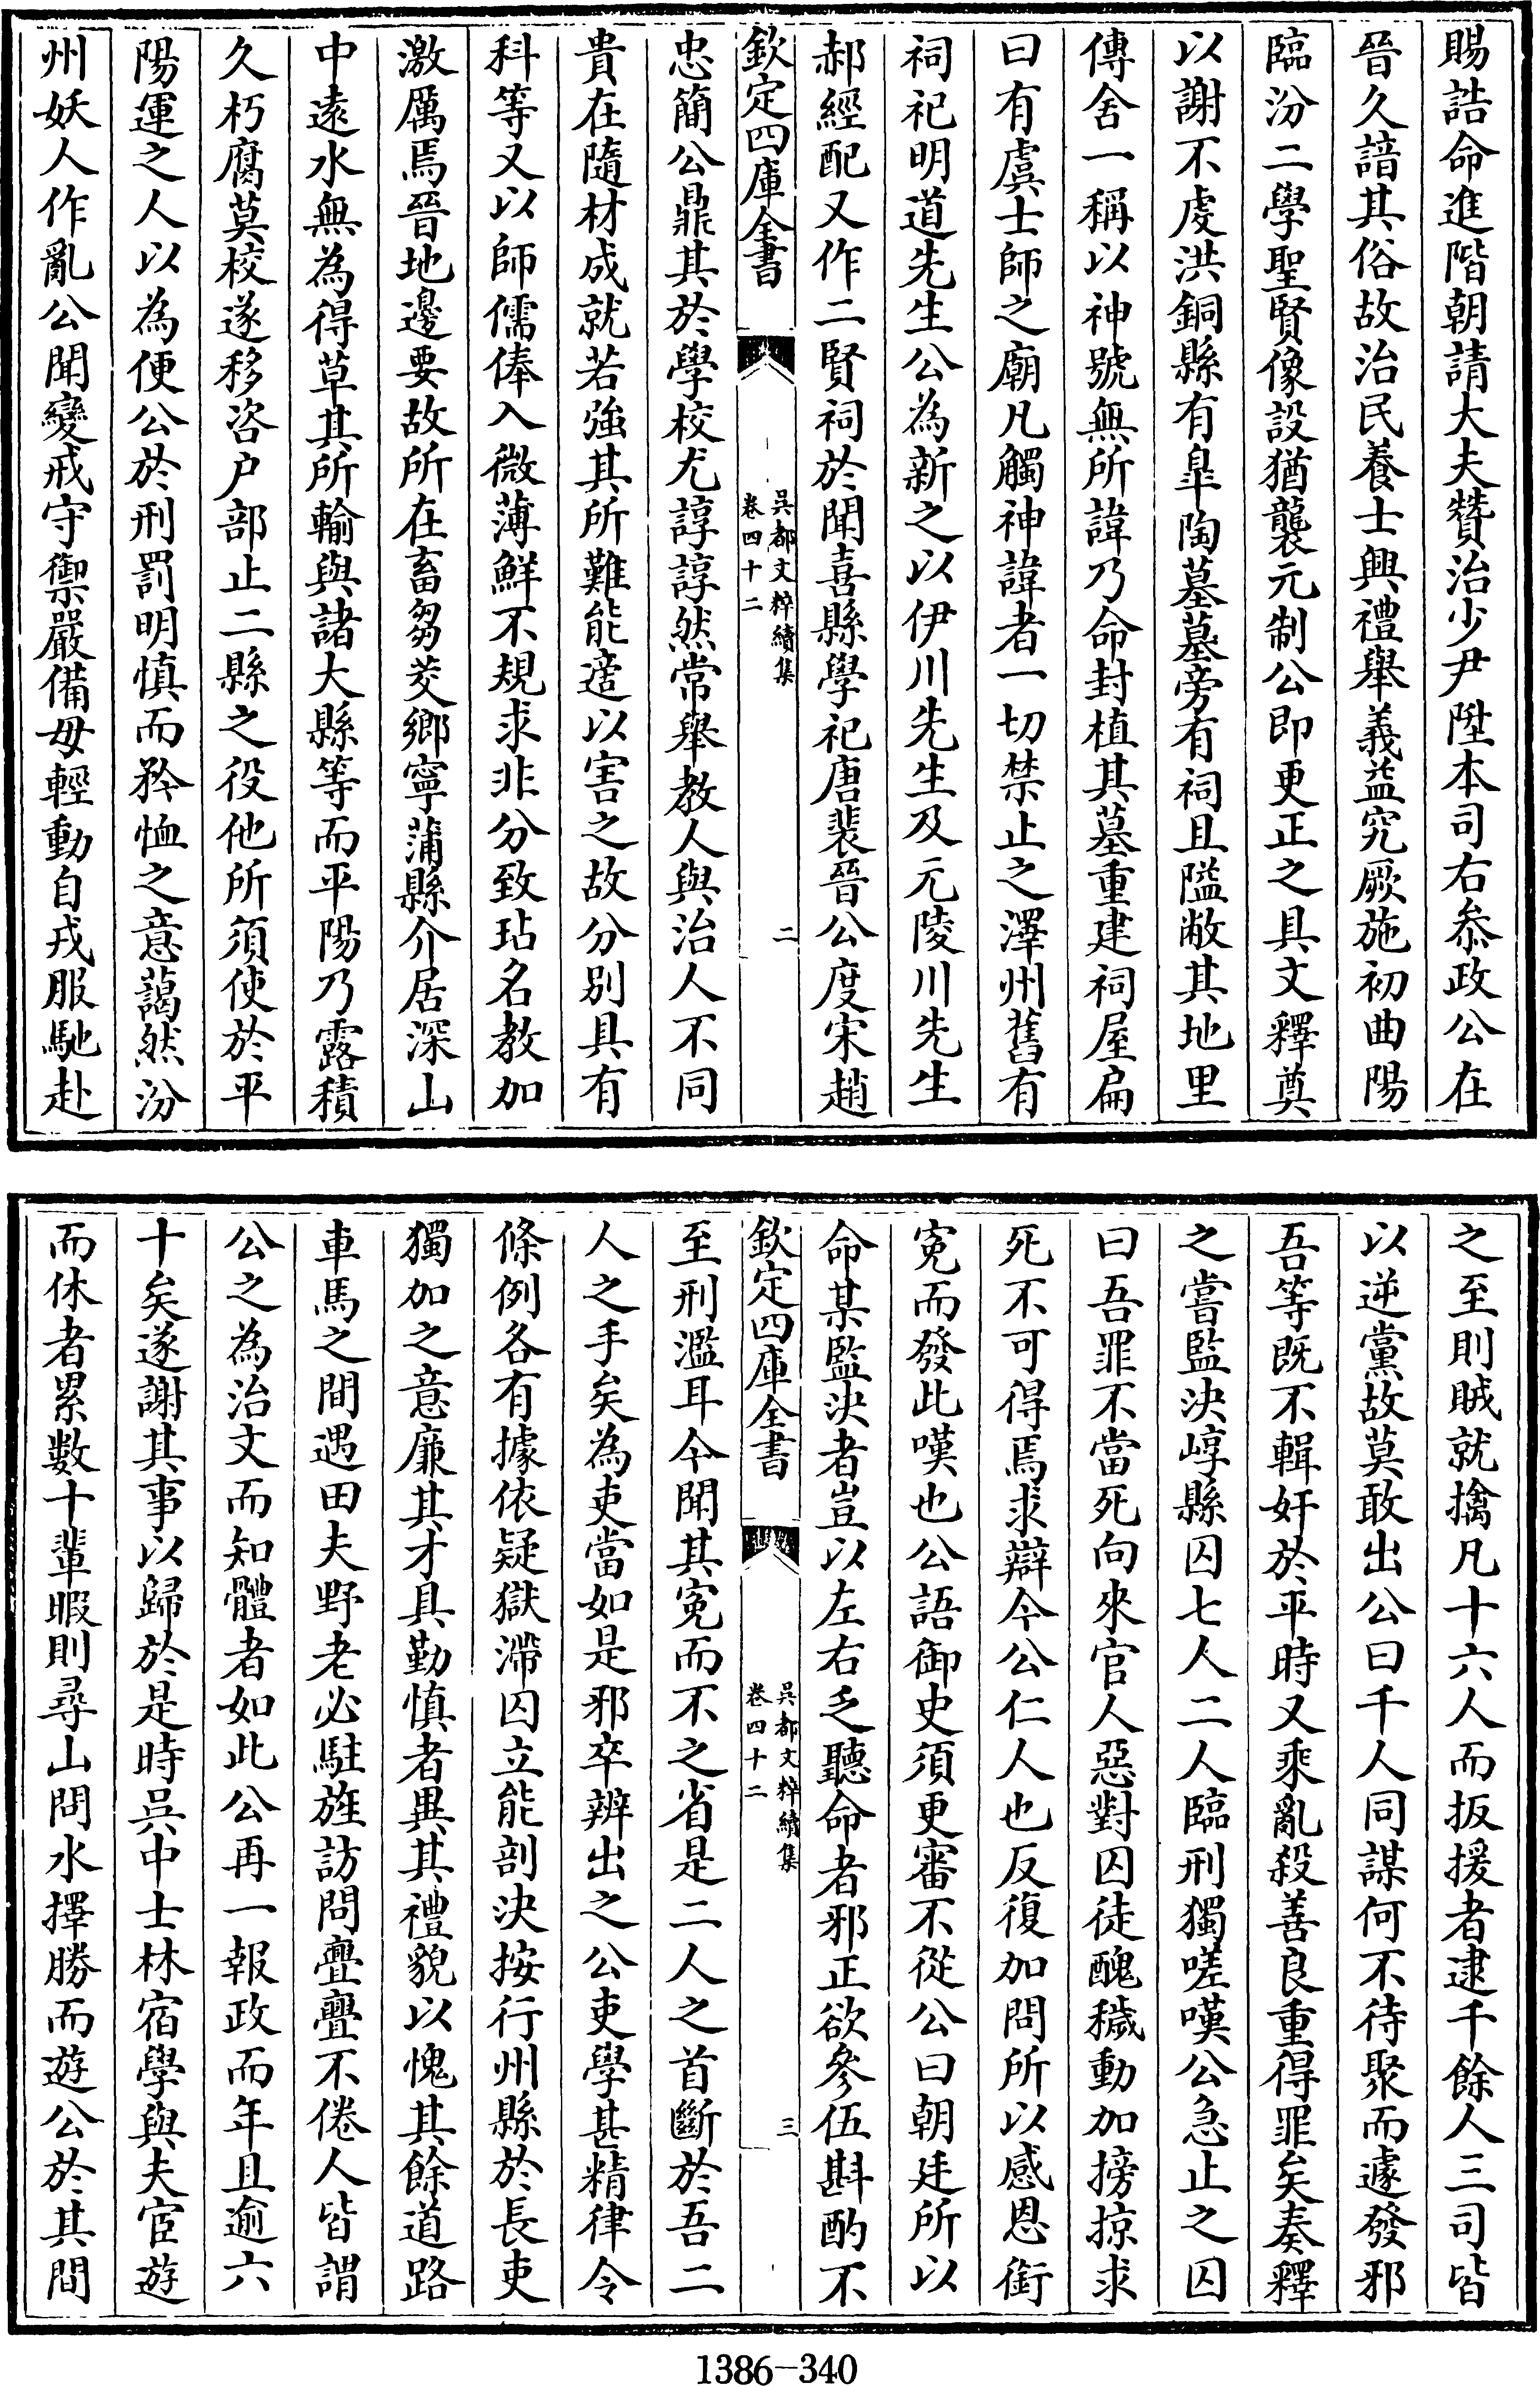 賜誥命進階朝請大夫贊治少尹陞本司右叅政公在
晉久諳其俗故治民養士興禮舉義益究厥施初曲陽
臨汾二學聖賢像設猶襲元制公即更正之具文釋奠
以謝不虔洪銅縣有臯陶墓墓旁有祠且隘敝其地里
傳舍一稱以神號無所諱乃命封植其墓重建祠屋扁
曰有虞士師之廟凡觸神諱者一切禁止之澤州舊有
祠祀明道先生公為新之以伊川先生及元陵川先生
郝經配又作二賢祠於聞喜縣學祀唐裴晉公度宋趙
欽定四庫全書
吳都文粹續集
卷四十二
二
忠簡公鼎其於學校尤諄諄然常舉教人與治人不同
貴在隨材成就若強其所難能適以害之故分別具有
科等又以師儒俸入微薄鮮不規求非分致玷名教加
激厲焉晉地邊要故所在畜芻茭鄉寧蒲縣介居深山
中遠水無為得草其所輸與諸大縣等而平陽乃露積
久朽腐莫校遂移咨户部止二縣之役他所須使於平
陽運之人以為便公於刑罰明慎而矜恤之意藹然汾
州妖人作亂公聞變戒守禦嚴備毋輕動自戎服馳赴
之至則賊就擒凡十六人而扳援者逮千餘人三司皆
以逆黨故莫敢出公曰千人同謀何不待聚而遽發邪
吾等既不輯奸於平時又乘亂殺善良重得罪矣奏釋
之嘗監決崞縣囚七人二人臨刑獨嗟嘆公急止之囚
曰吾罪不當死向來官人惡對囚徒醜穢動加搒掠求
死不可得焉求辯今公仁人也反復加問所以感恩銜
寃而發此嘆也公語御史須更審不從公曰朝廷所以
命某監決者豈以左右乏聽命者邪正欲參伍斟酌不
欽定四庫全書
吳都文粹續集
卷四十二
三
至刑濫耳今聞其寃而不之省是二人之首斷於吾二
人之手矣為吏當如是邪卒辨出之公吏學甚精律令
條例各有據依疑獄滯囚立能剖決按行州縣於長吏
獨加之意廉其才具勤慎者異其禮貌以愧其餘道路
車馬之間遇田夫野老必駐旌訪問亹亹不倦人皆謂
公之為治文而知體者如此公再一報政而年且逾六
十矣遂謝其事以歸於是時吳中士林宿學與夫宦遊
而休者累數十輩暇則尋山問水擇勝而遊公於其間
1386-340